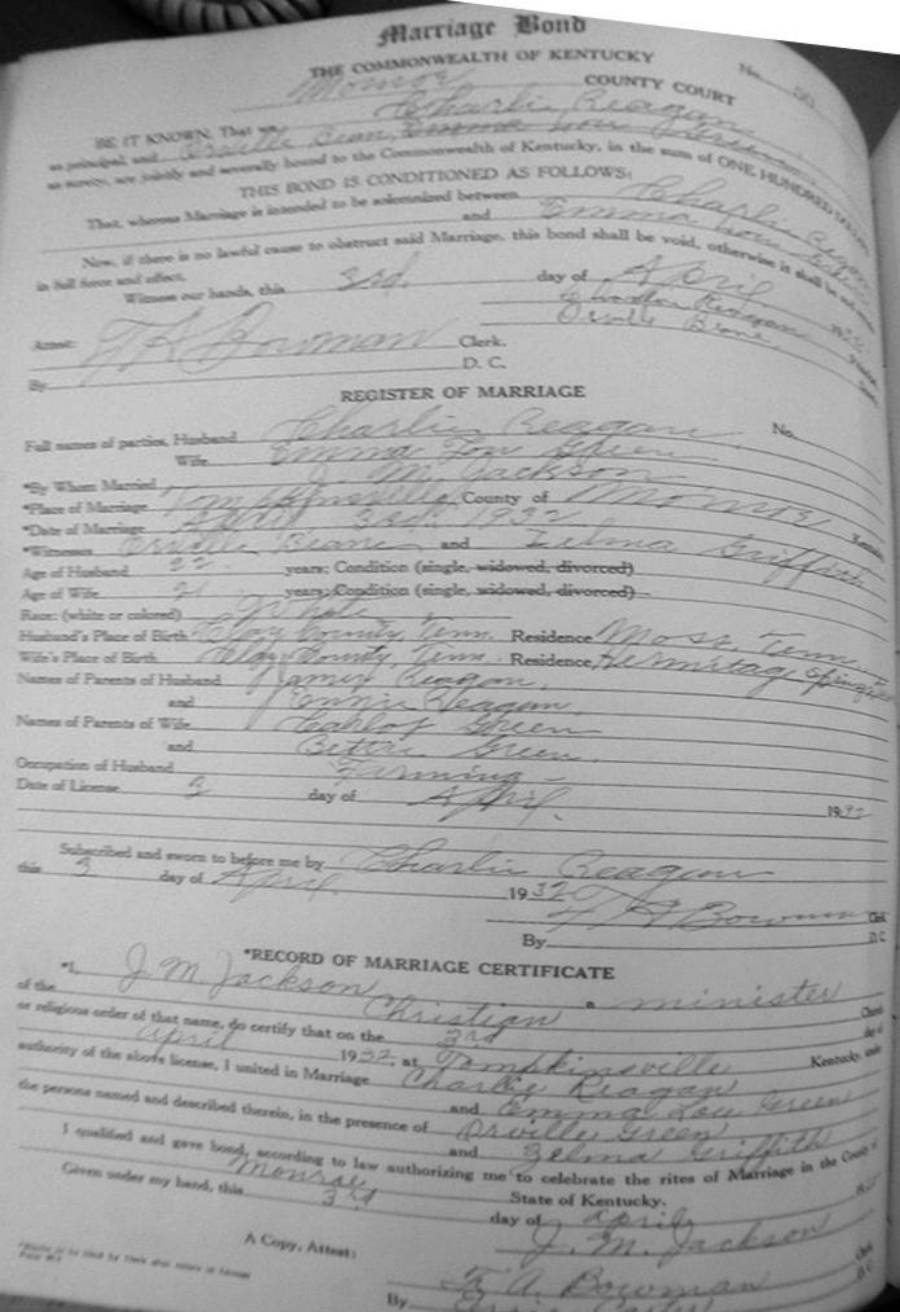 Marriage Bond
THE COMMONWEALTH OF KENTUCKY No. 50
Monroe COUNTY COURT
BE IT KNOWN, That we Charlie Reagan
as principal, and Orville Emma Lou
as surety, are jointly and severally bound to the Commonwealth of Kentucky, in the sum of ONE HUNDRED
THIS BOND IS CONDITIONED AS FOLLOWS:
That, whereas Marriage is intended to be solemnized between Charlie Reagan
and Emma Lou
Now, if there is no lawful cause to obstruct said Marriage, this bond shall be void, otherwise it shall be
in full force and effect.
Witness our hands, this 3rd. day of April 19
Charlie Reagan
Orville
Attest: Bowman Clerk.
By D. C.
REGISTER OF MARRIAGE
Full names of parties, Husband Charlie Reagan No.
Wife Emma Lou Green
*By Whom Married J. M. Jackson
*Place of Marriage Tompkinsville, County of Monroe Kentucky
*Date of Marriage April 3rd 1932
*Witnesses Orville and Zelma Griffith
Age of Husband 22 years; Condition (single, widowed, divorced)
Age of Wife 21 years; Condition (single, widowed, divorced)
Race: (white or colored) White
Husband's Place of Birth Clay County, Tenn. Residence Moss, Tenn.
Wife's Place of Birth Clay County, Tenn. Residence, Hermitage Springs
Names of Parents of Husband James Reagan,
and Reagan,
Names of Parents of Wife Green
and Green.
Occupation of Husband Farming
Date of License 3 day of April. 1932
Subscribed and sworn to before me by Charlie Reagan
this 3 day of April 1932
Bowman Clerk
By D. C.
*RECORD OF MARRIAGE CERTIFICATE
*I, J. M. Jackson a minister
of the Christian Church
or religious order of that name, do certify that on the 3rd day of
April 1932, at Tompkinsville Kentucky, under
authority of the above license, I united in Marriage Charlie Reagan
and Emma Lou Green
the persons named and described therein, in the presence of Orville Green
and Zelma Griffith
I qualified and gave bond, according to law authorizing me to celebrate the rites of Marriage in the County of
Monroe State of Kentucky.
Given under my hand, this 3rd day of April
J. M. Jackson
A Copy, Attest:
Bowman Clerk
By D. C.